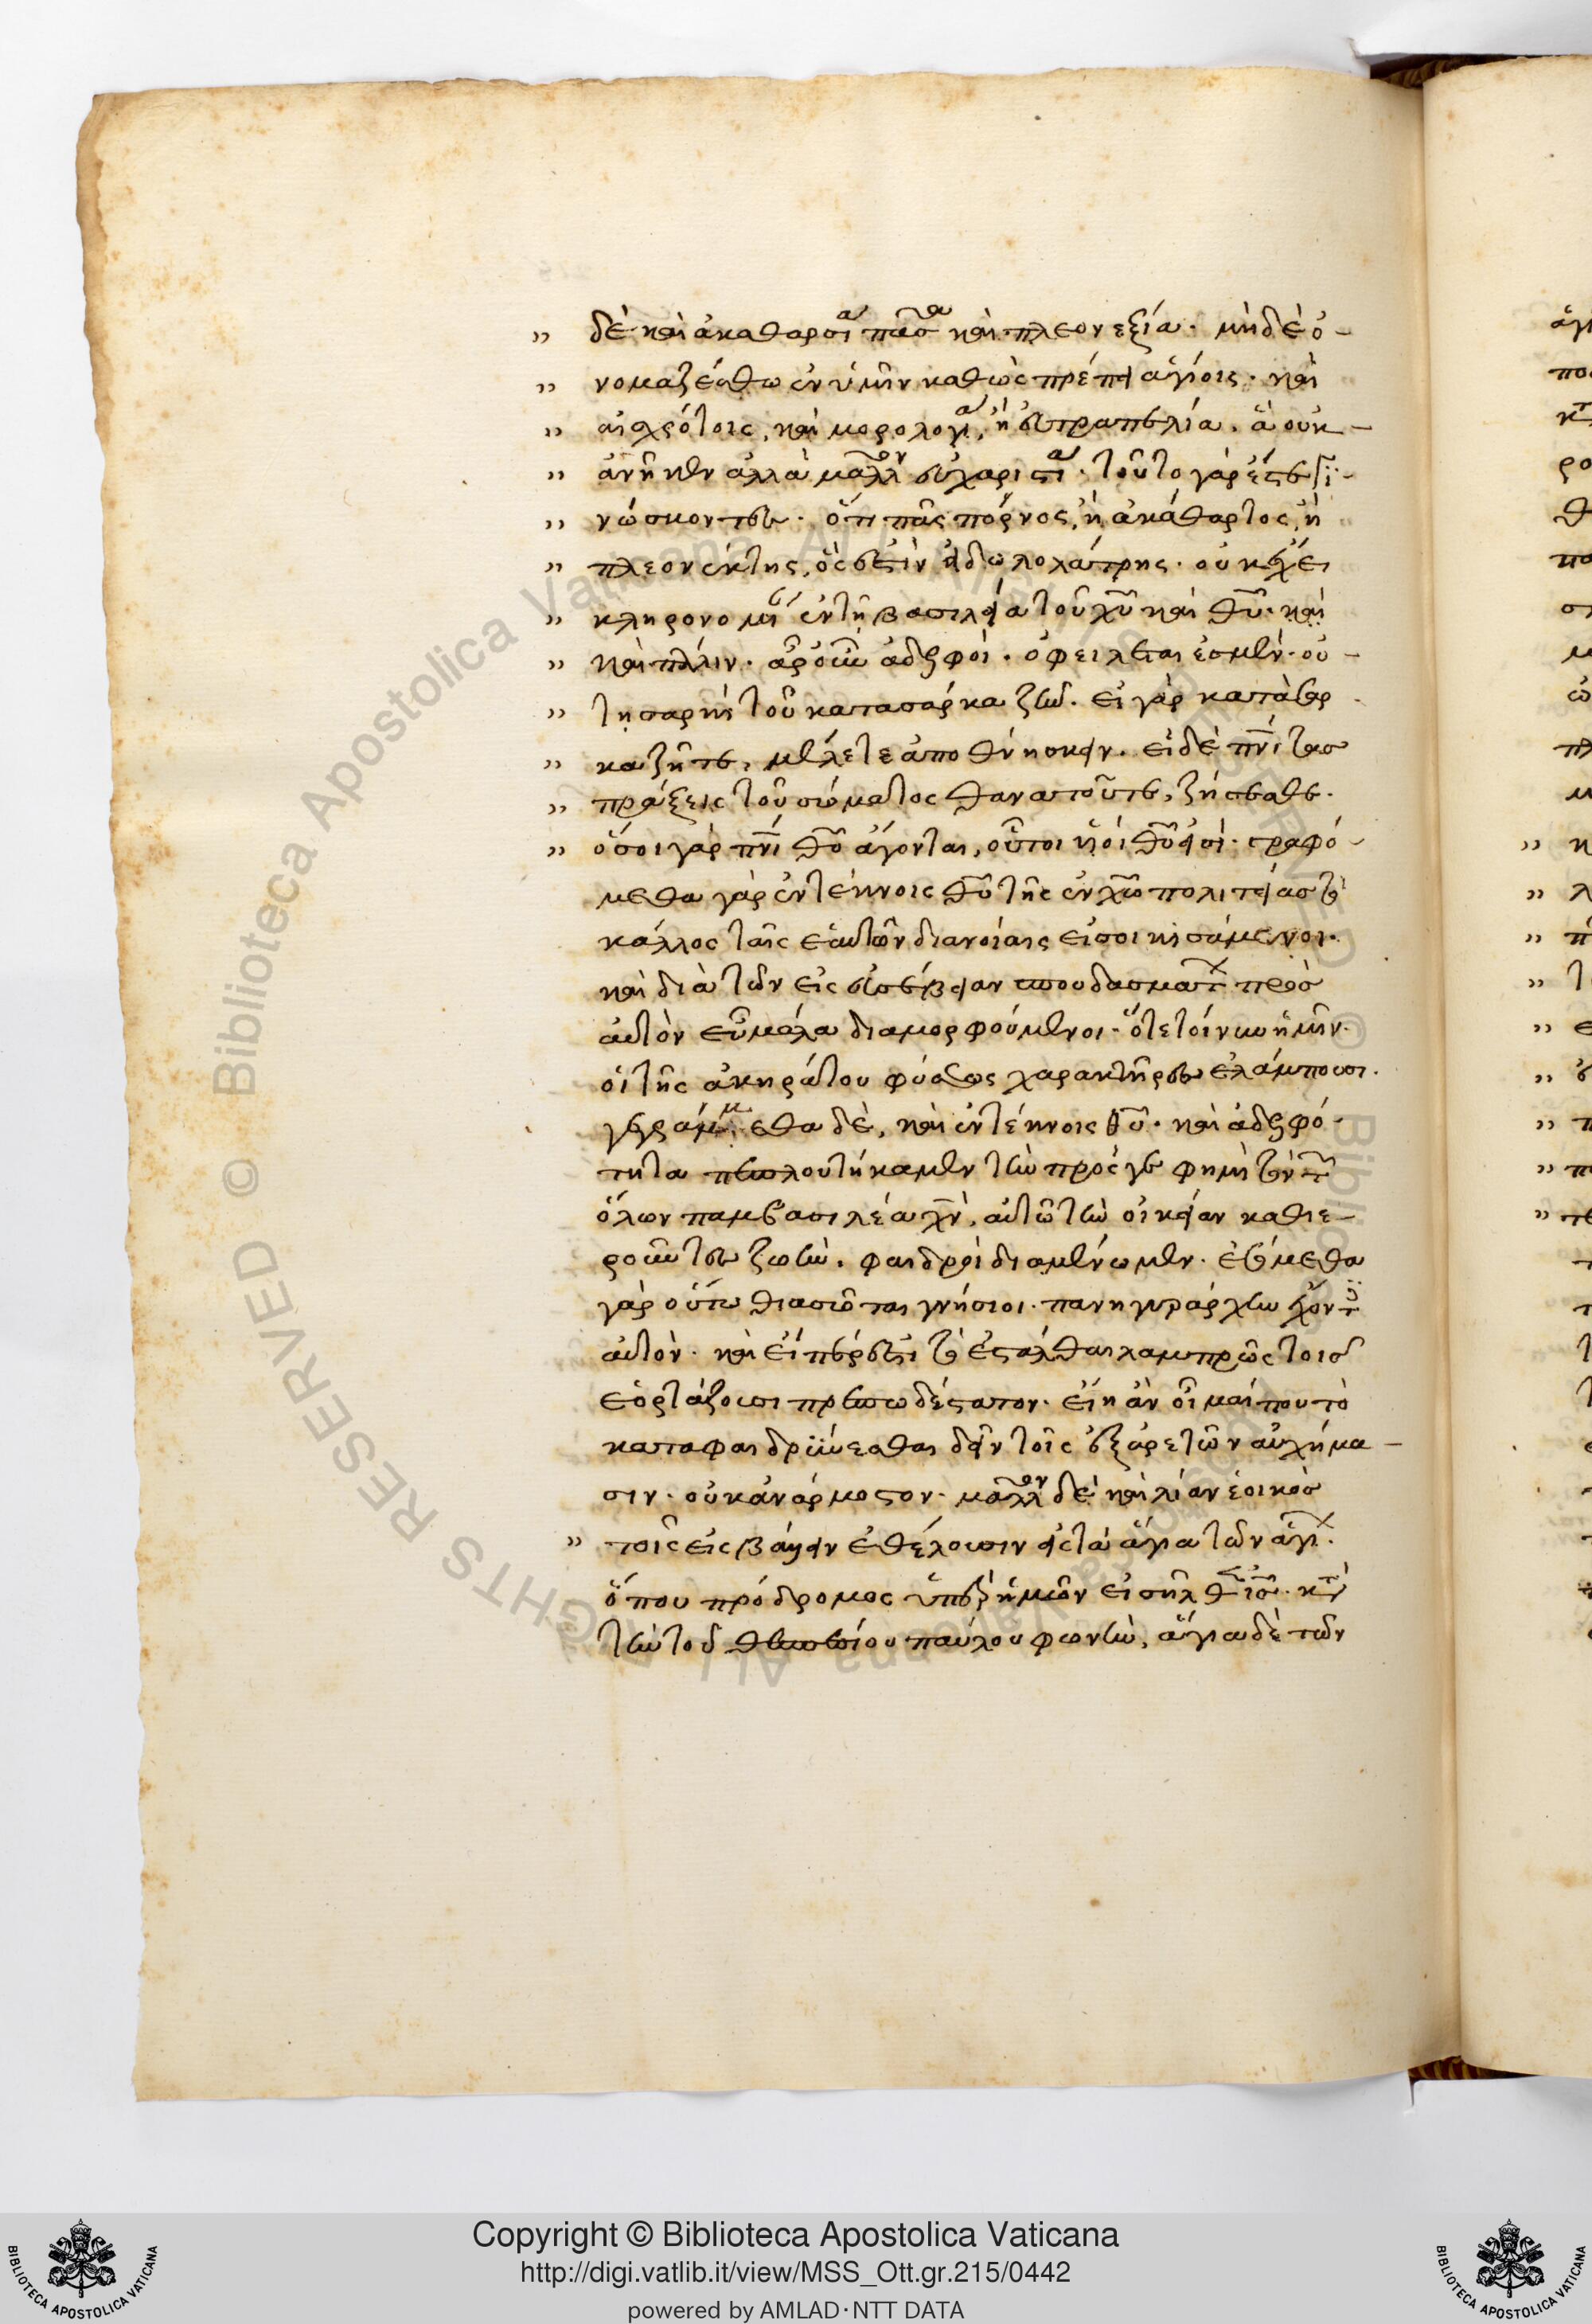 ” δὲ καὶ ἀκαθαρσία πᾶσα καὶ πλεονεξία. μηδὲ ὀ-
” νομαζέσθω ἐν ὑμῖν καθὼς πρέπει ἁγίοις. καὶ
” αἰσχρότοις, καὶ μορολογία, ἢ εὐτραπελία. ἃ οὐκ-
” ἀνῆκεν ἀλλὰ μᾶλλον εὐχαριστία. τοῦτο γὰρ ἔστε γϊ-
” νώσκοντες. ὅτι πᾶς πόρνος, ἢ ἀκάθαρτος, ἢ
” πλεονέκτης, ὅς ἐστιν εἰδωλολάτρης. οὐκ ἔχει
” κληρονομίαν ἐν τῆ βασιλεία τοῦ χῦ καὶ θῦ. καὶ
” καὶ πάλιν. ἄρ οὖν ἀδελφοὶ. ὀφειλέται ἐσμέν. οὐ-
” τῆ σαρκὶ τοῦ κατασάρκα ζῆν. εἰ γὰρ κατὰ σάρ
” κα ζῆτε, μέλετε ἀποθνήσκειν. εἰ δὲ πνι τὰσ
” πράξεις τοῦ σώματος θανατοῦτε, ζήσεσθε.
” ὅσοι γὰρ πνι θῦ ἄγονται, οὗτοι ϋἱοί θῦ εἰσί. γραφό-
μεθα γὰρ ἐν τέκνοις θῦ τῆς ἐν χῶ πολιτείασ τὸ
κάλλος ταῖς ἑαυτῶν διανοίαις εἰσοικησάμενοι.
καὶ διὰ τῶν εἰς εὐσέβειαν σπουδασμάτων πρὸσ
αὐτὸν εὖ μάλα διαμορφούμενοι. ὅτε τοίνυν ἡμῖν.
οἱ τῆς ἀκηράτου φύσεως χαρακτῆρες ἐλάμπουσι.
γεγράμμεθα δὲ, καὶ ἐν τέκνοις θῦ. καὶ ἀδελφό-
τητα πεπλουτήκαμεν τὴν πρός γε φημὶ τὸν τῶν
ὅλων παμβασιλέα χν, αὐτῶ τὴν οἰκείαν καθιε-
ροῦντες ζωὴν. φαιδροὶ διαμένωμεν. ἐσόμεθα
γὰρ οὕτω θιασῶται γνήσιοι. πανηγυράρχην ἔχοντες
αὐτὸν. καὶ εἴπερ ἐστὶ τὸ ἐστάλθαι λαμπρῶς τοισ
ἑορτάζουσι πρεπωδέστατον. εἴη ἂν οἶμαί που τὸ
καταφαιδρύνεσθαι δεῖν τοῖς ἐξ ἀρετῶν αὐχήμα-
σιν. οὐκ ἀνάρμοστον. μᾶλλον δὲ καὶ λίαν ἐοικὸσ
” τοῖς εἰσβαίνειν ἐθέλουσιν εἰς τὰ ἅγια τῶν ἁγίων.
ὅπου πρόδρομος ὑπὲρ ἡμῶν εἰσῆλθεν ισ. κατὰ
τὴν τοῦ θεσπεσίου παύλου φωνὴν, ἅγια δὲ τῶν
Copyright © Biblioteca Apostolica Vaticana
http://digi.vatlib.it/view/MSS_Ott.gr.215/0442
powered by AMLAD·NTT DATA